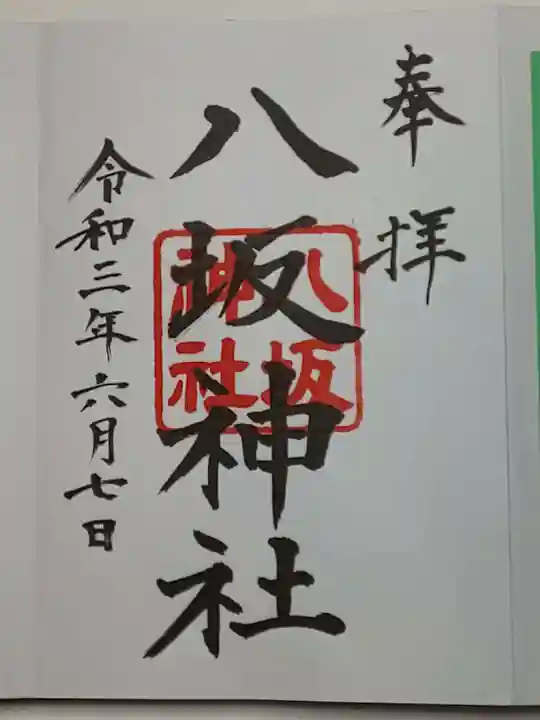 奉拝
八坂神社
八坂
神社
令和三年六月七日